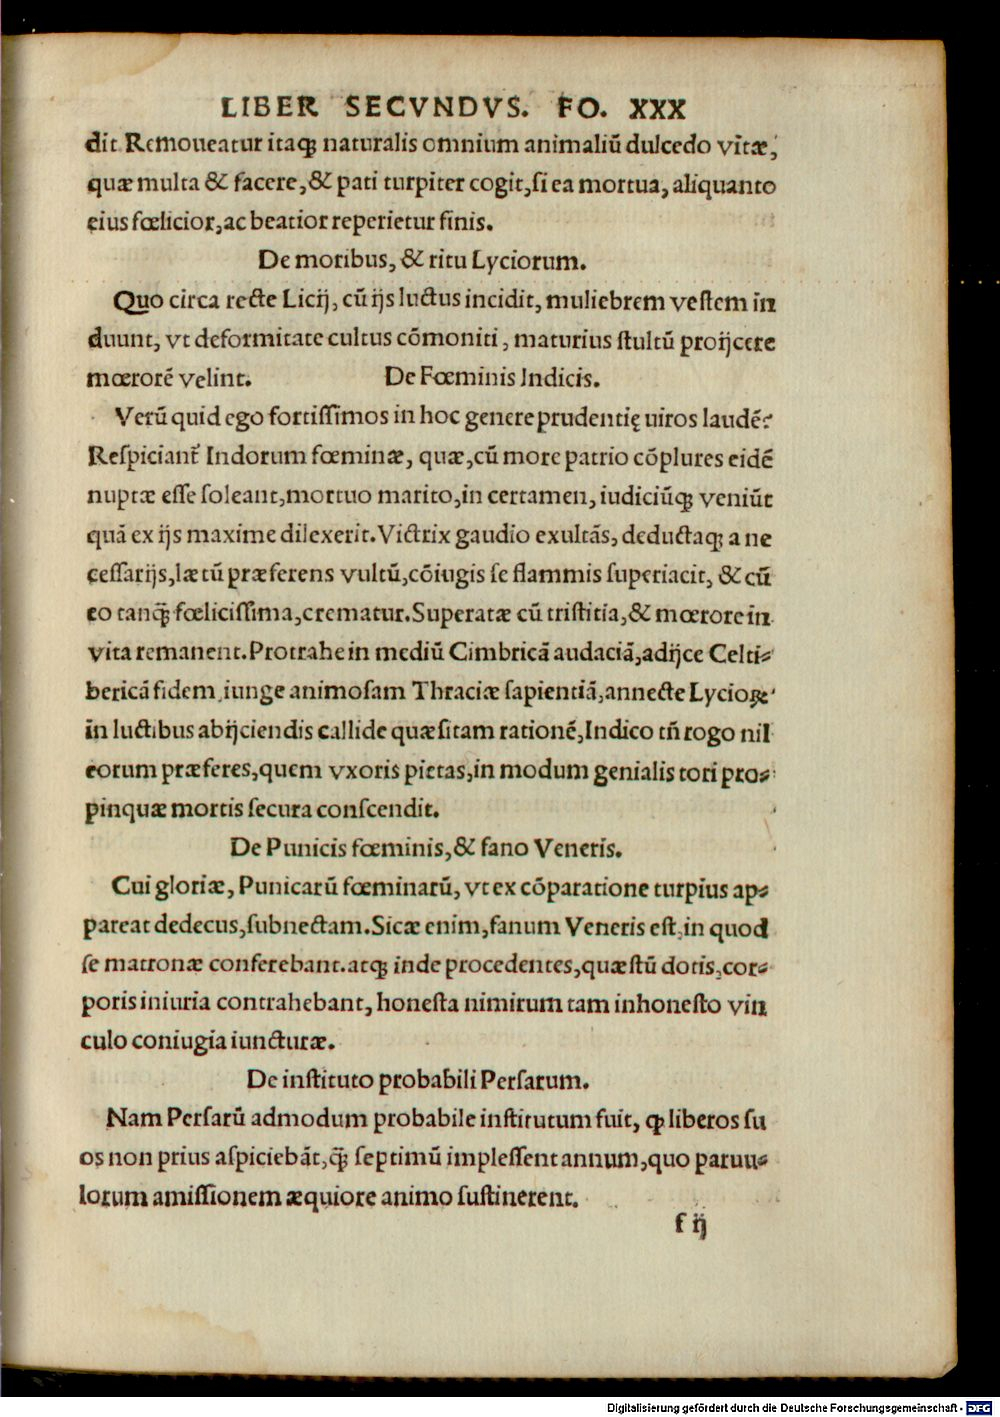 LIBER SECVNDVS. FO. XXX
dit Remoueatur itaqꝫ naturalis omnium animaliū dulcedo vitæ,
quæ multa & facere, & pati turpiter cogit, si ea mortua, aliquanto
eius fœlicior, ac beatior reperietur finis.
De moribus, & ritu Lyciorum.
Quo circa recte Licĳ, cū ĳs luctus incidit, muliebrem vestem in
duunt, vt deformitate cultus cōmoniti, maturius stultū proĳcere
mœrorē velint. De Fœminis Indicis.
Verū quid ego fortissimos in hoc genere prudentię uiros laudē?
Respiciant᷑ Indorum fœminæ, quæ, cū more patrio cōplures eidē
nuptæ esse soleant, mortuo marito, in certamen, iudiciūqꝫ veniūt
quā ex ĳs maxime dilexerit. Victrix gaudio exultās, deductaqꝫ a ne
cessarĳs, lætū præferens vultū, cōiugis se flammis superiacit, & cū
eo tanqꝫ̃ fœlicissima, crematur. Superatæ cū tristitia, & mœrore in
vita remanent. Protrahe in mediū Cimbricā audaciā, adĳce Celti⸗
bericā fidem, iunge animosam Thraciæ sapientiā, annecte Lycioꝝ
in luctibus abĳciendis callide quæsitam rationē, Indico tñ rogo nil
eorum præferes, quem vxoris pietas, in modum genialis tori pro⸗
pinquæ mortis secura conscendit.
De Punicis fœminis, & fano Veneris.
Cui gloriæ, Punicarū fœminarū, vt ex cōparatione turpius ap⸗
pareat dedecus, subnectam. Sicæ enim, fanum Veneris est, in quod
se matronæ conferebant. atqꝫ inde procedentes, quæstū dotis, cor⸗
poris iniuria contrahebant, honesta nimirum tam inhonesto vin
culo coniugia iuncturæ.
De instituto probabili Persarum.
Nam Persarū admodum probabile institutum fuit, ꝙ liberos su
os non prius aspiciebāt, qꝫ̃ septimū implessent annum, quo paruu⸗
lorum amissionem æquiore animo sustinerent.
f ĳ
Digitalisierung gefördert durch die Deutsche Forschungsgemeinschaft - DFG